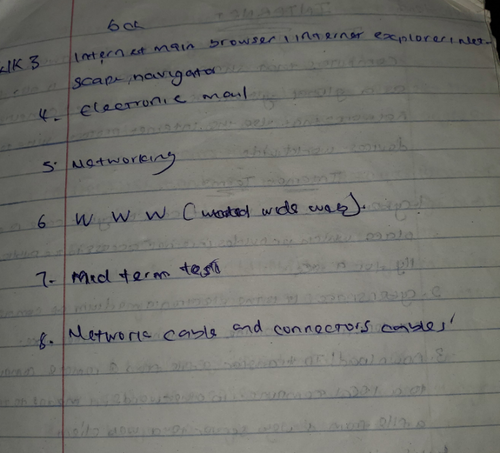 WK 3 Internet main browser, internet explorer, Net-
scape, navigator
4. Electronic mail
5. Networking
6 W W W (world wide web).
7. Mid term test
8. Network cable and connectors cables